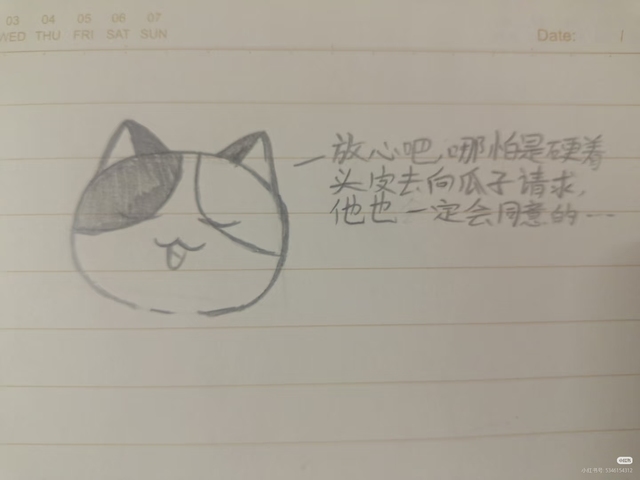 03 04 05 06 07
WED THU FRI SAT SUN
Date: /
放心吧,哪怕是硬着
头皮去向瓜子请求,
他也一定会同意的…
小红书
小红书号: